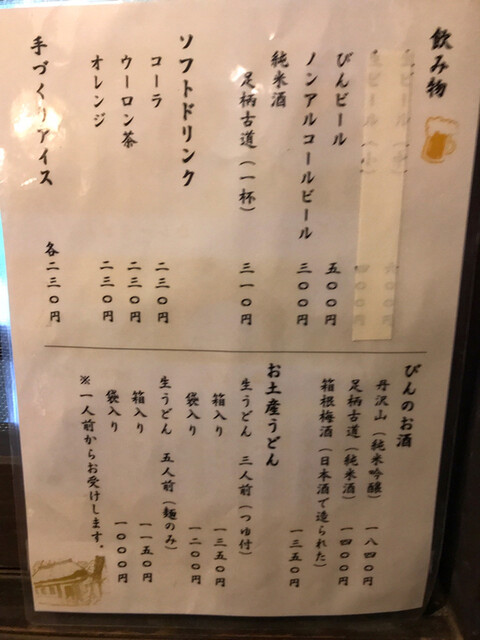 飲み物
生ビール
生ビール（小）
びんビール 五〇〇円
ノンアルコールビール 三〇〇円
純米酒
足柄古道（一杯） 三一〇円
ソフトドリンク
コーラ 二三〇円
ウーロン茶 二三〇円
オレンジ 二三〇円
手づくりアイス 各二三〇円
びんのお酒
丹沢山（純米吟醸） 一八四〇円
足柄古道（純米酒） 一四〇〇円
箱根梅酒（日本酒で造られた） 一三五〇円
お土産うどん
生うどん 三人前（つゆ付）
箱入り 一三五〇円
袋入り 一二〇〇円
生うどん 五人前（麺のみ）
箱入り 一一五〇円
袋入り 一〇〇〇円
※一人前からお受けします。